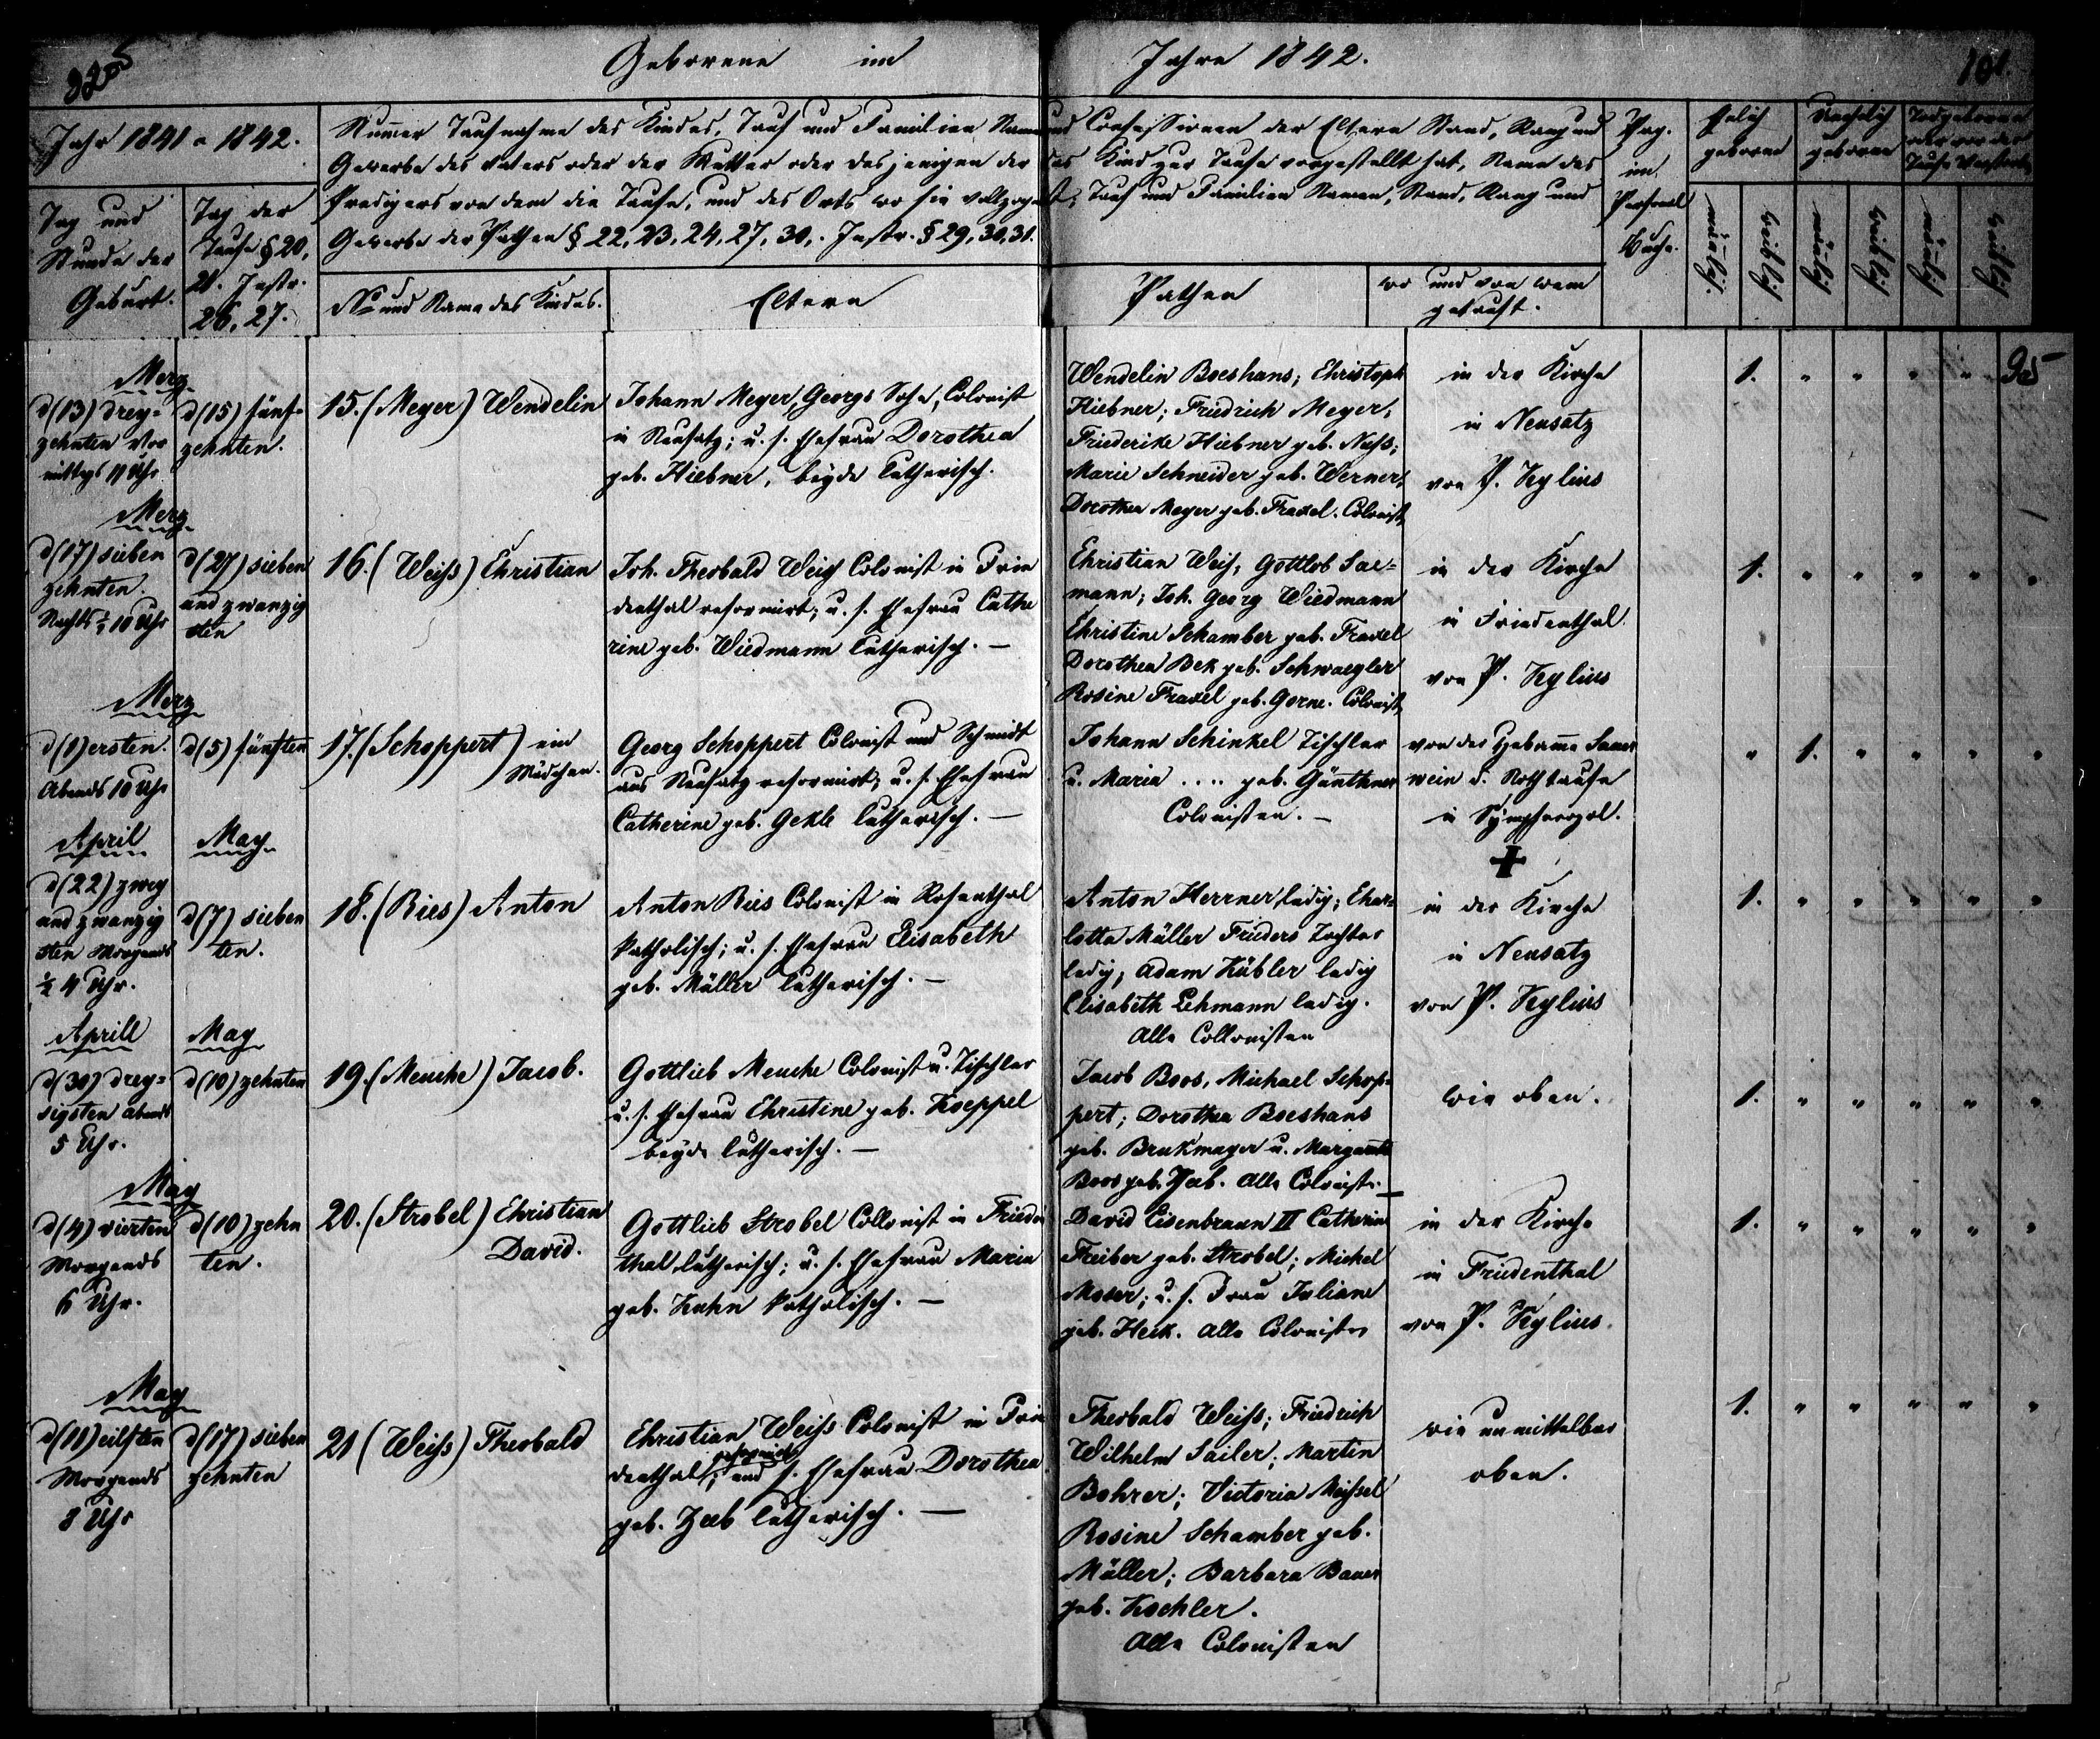 Geborene im Jahre 1842.
101.
Jahr 1841 a 1842.
Tag und
Stunde der
Geburt.
Tag der
Taufe § 20,
21. Instr.
26, 27.
Numer Taufname des Kindes, Tauf und Familien Namen und Confessionen der Eltern Stand, Rang und
Gewerbe des Vaters oder der Mutter oder desjenigen der das Kind zur Taufe vorgestellt hat, Name des
Predigers von dem die Taufe, und des Orts wo sie vollzogen ist; Tauf und Familien Namen, Stand, Rang und
Gewerbe der Pathen § 22, 23, 24, 27, 30,. Instr. § 29, 30, 31.
No und Name des Kindes.
Eltern
Pathen
wo und von wem
getauft.
Pag.
im
Personal
Buche.
Ehelich
geboren
Unehelich
geboren
Todgeboren
oder vor der
Taufe
mänlich
weiblich
mänlich
weiblich
mänlich
weiblich
Merz
d (13) drey=
zehnten Vor
mittags 11 Uhr
d (15) fünf=
zehnten.
15. (Meyer) Wendelin
Johann Meyer, Georgs Sohn, Colonist
in Neusatz; u. s. Ehefrau Dorothea
geb. Hiebner, beyde lutherisch.
Wendelin Boeshans; Christoph
Hiebner; Friedrich Meyer;
Friederike Hiebner geb. Nuss;
Marie Schneider geb. Werner,
Dorothea Meyer geb. Fraxel. Colonist,
in der Kirche
in Neusatz
von P. Kylius
1. " " " " "
95
Merz
d (17) sieben
zehnten.
Nachts ½ 10 Uhr
d (27) sieben
und zwanzig
sten
16. (Weiss) Christian
Joh. Theobald Weiss Colonist in Frie
denthal reformirt; u. s. Ehefrau Cathe
rine geb. Wiedmann lutherisch. —
Christian Weiss, Gottlob Sae=
mann; Joh. Georg Wiedmann
Christine Schamber geb. Fraxel
Dorothea Bek geb. Schwaegler
Rosine Fraxel geb. Gorne. Colonist,
in der Kirche
in Friedenthal.
von P. Kylius
1. " " " " "
Merz
d (1) ersten.
Abends 10 Uhr
d (5) fünften
17. (Schoppert) ein
Mädchen.
Georg Schoppert Colonist und Schmidt
aus Neusatz reformirt, u. s. Ehefrau
Catherine geb. Gekle lutherisch. —
Johann Schinkel Tischler
u. Maria .... geb. Günthner
Colonisten. —
von der Hebame Sauer
wein d. Nothtaufe
in Sympheropol.
+
" 1. " " " "
April
d (22) zwey
und zwanzig
sten Morgends
½ 4 Uhr.
May
d (7) sieben
ten.
18. (Ries) Anton
Anton Ries Colonist in Rosenthal
katholisch; u. s. Ehefrau Elisabeth
geb. Müller lutherisch. —
Anton Herrner ledig; Char=
lotta Müller Frieders Tochter
ledig; Adam Kübler ledig
Elisabeth Lehmann ledig.
Alle Collonisten
in der Kirche
in Neusatz
von P. Kylius
1. " " " " "
Aprill
d (30) drey=
sigsten Abends
5 Uhr.
May
d (10) zehnten
19. (Meuche) Jacob.
Gottlieb Meuche Colonist u. Tischler
u. s. Ehefrau Christine geb. Koeppel
beyde lutherisch. —
Jacob Boos, Michael Schop=
pert; Dorothea Boeshans
geb. Brukmayer u. Margareth
Boos geb. Heeb. Alle Coloniste. —
wie oben.
1. " " " " "
May
d (4) vierten
Morgends
6 Uhr.
d (10) zehn
ten.
20. (Strobel) Christian
David.
Gottlieb Strobel Collonist in Frieden
thal lutherisch; u. s. Ehefrau Maria
geb. Kuhn katholisch. —
David Eisenbraun II Catherine
Freiber geb. Strobel; Michel
Moser; u. s. Frau Juliane
geb. Heck. Alle Colonisten
in der Kirche
in Friedenthal
von P. Kylius.
1. " " " " "
May
d (11) eilften
Morgends
8 Uhr
d (17) sieben
zehnten
21 (Weiss) Theobald
Christian Weiss Colonist in Frie
denthal; reformirt und s. Ehefrau Dorothea
geb. Heeb lutherisch. —
Theobald Weiss; Friedrich
Wilhelm Sailer; Martin
Bohrer; Victoria Meissel
Rosine Schamber geb.
Müller; Barbara Bauer
geb. Kochler.
Alle Colonisten
wie unmittelbar
oben.
1. " " " " "